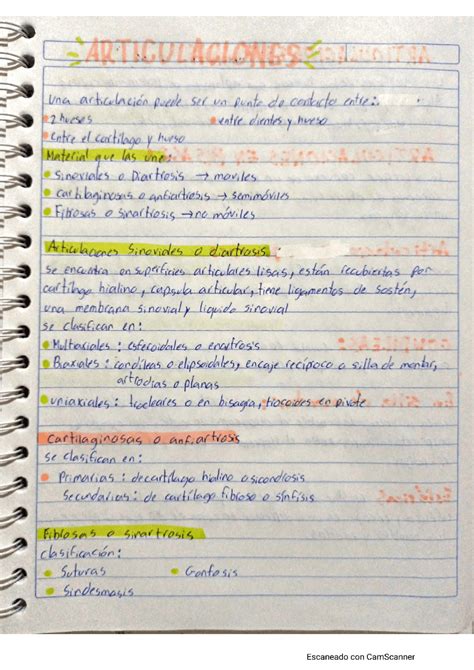 ARTICULACIONES
una articulación puede ser un punto de contacto entre:
• 2 hueses • entre dientes y hueso
• Entre el cartilago y hueso
Material que las une:
• Sinoviales o Diartrosis → moviles
• cartilaginosas o anfiartrosis → semimóviles
• Fibrosas o sinartrosis → no móviles
Articulaciones Sinoviales o diartrosis :
se encuentra en superficies articulares lisas, están recubiertas por
cartílago hialino, capsula articular, tiene ligamentos de sostén,
una membrana sinovial y liquido sinovial
se clasifican en:
• Multiaxiales : esferoidales o enartrosis
• Biaxiales : condíleas o elipsoidales, encaje recíproco o silla de montar,
artrodias o planas
• uniaxiales : trocleares o en bisagra, trocoides en pivote
Cartilaginosas o anfiartrosis
se clasifican en:
• Primarias : de cartílago hialino o sicondrosis
Secundarias : de cartílago fibroso o sínfisis
Fibrosas o sinartrosis
clasificación :
• Suturas • Gonfosis
• Sindesmosis
Escaneado con CamScanner